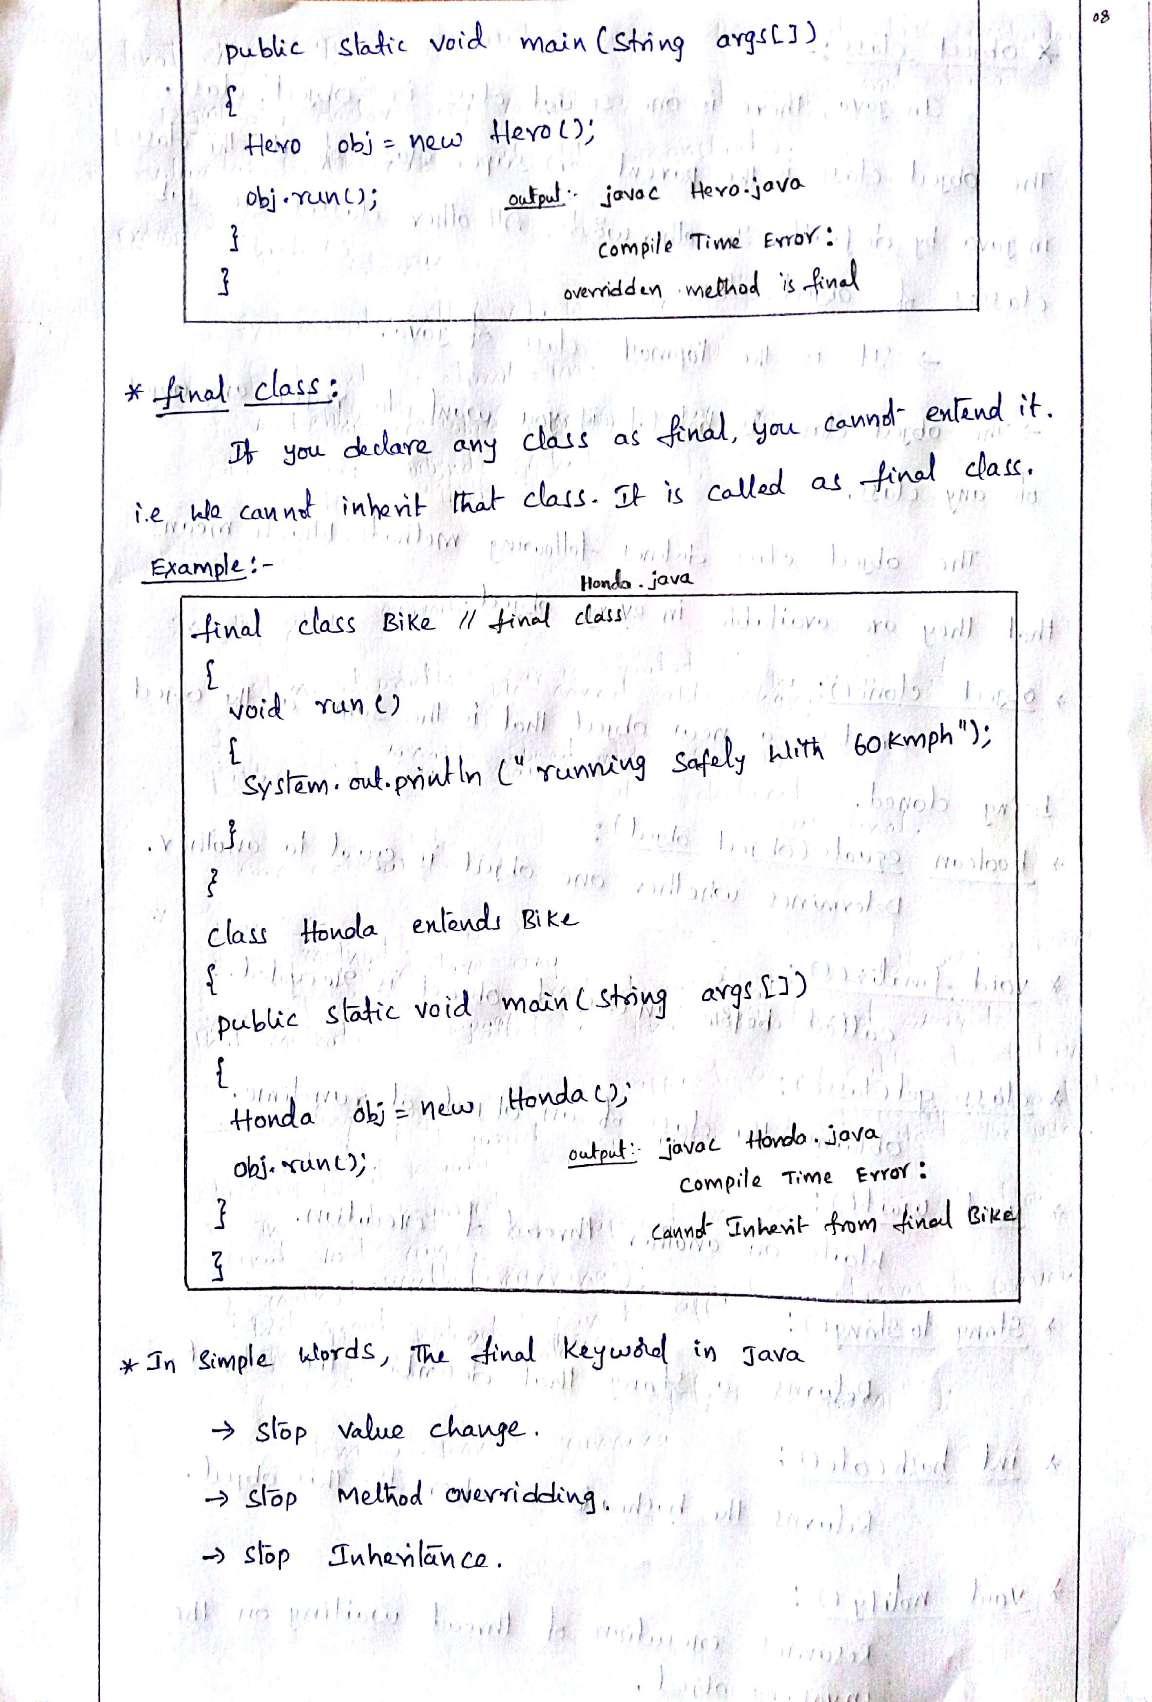 08
public static void main (String args[])
{
Hero obj = new Hero();
obj.run(); output:- javac Hero.java
} compile Time Error:
} overridden method is final
* final class:
If you declare any class as final, you cannot extend it.
i.e we cannot inherit that class. It is called as final class.
Example:-
Honda.java
final class Bike // final class
{
void run()
{
System.out.println ("running Safely With 60kmph");
}
}
class Honda extends Bike
{
public static void main (String args[])
{
Honda obj = new Honda();
obj.run(); output:- javac Honda.java
compile Time Error:
} cannot Inherit from final Bike
}
* In Simple Words, The final Keyword in Java
→ stop value change.
→ stop Method overridding.
→ stop Inheritance.